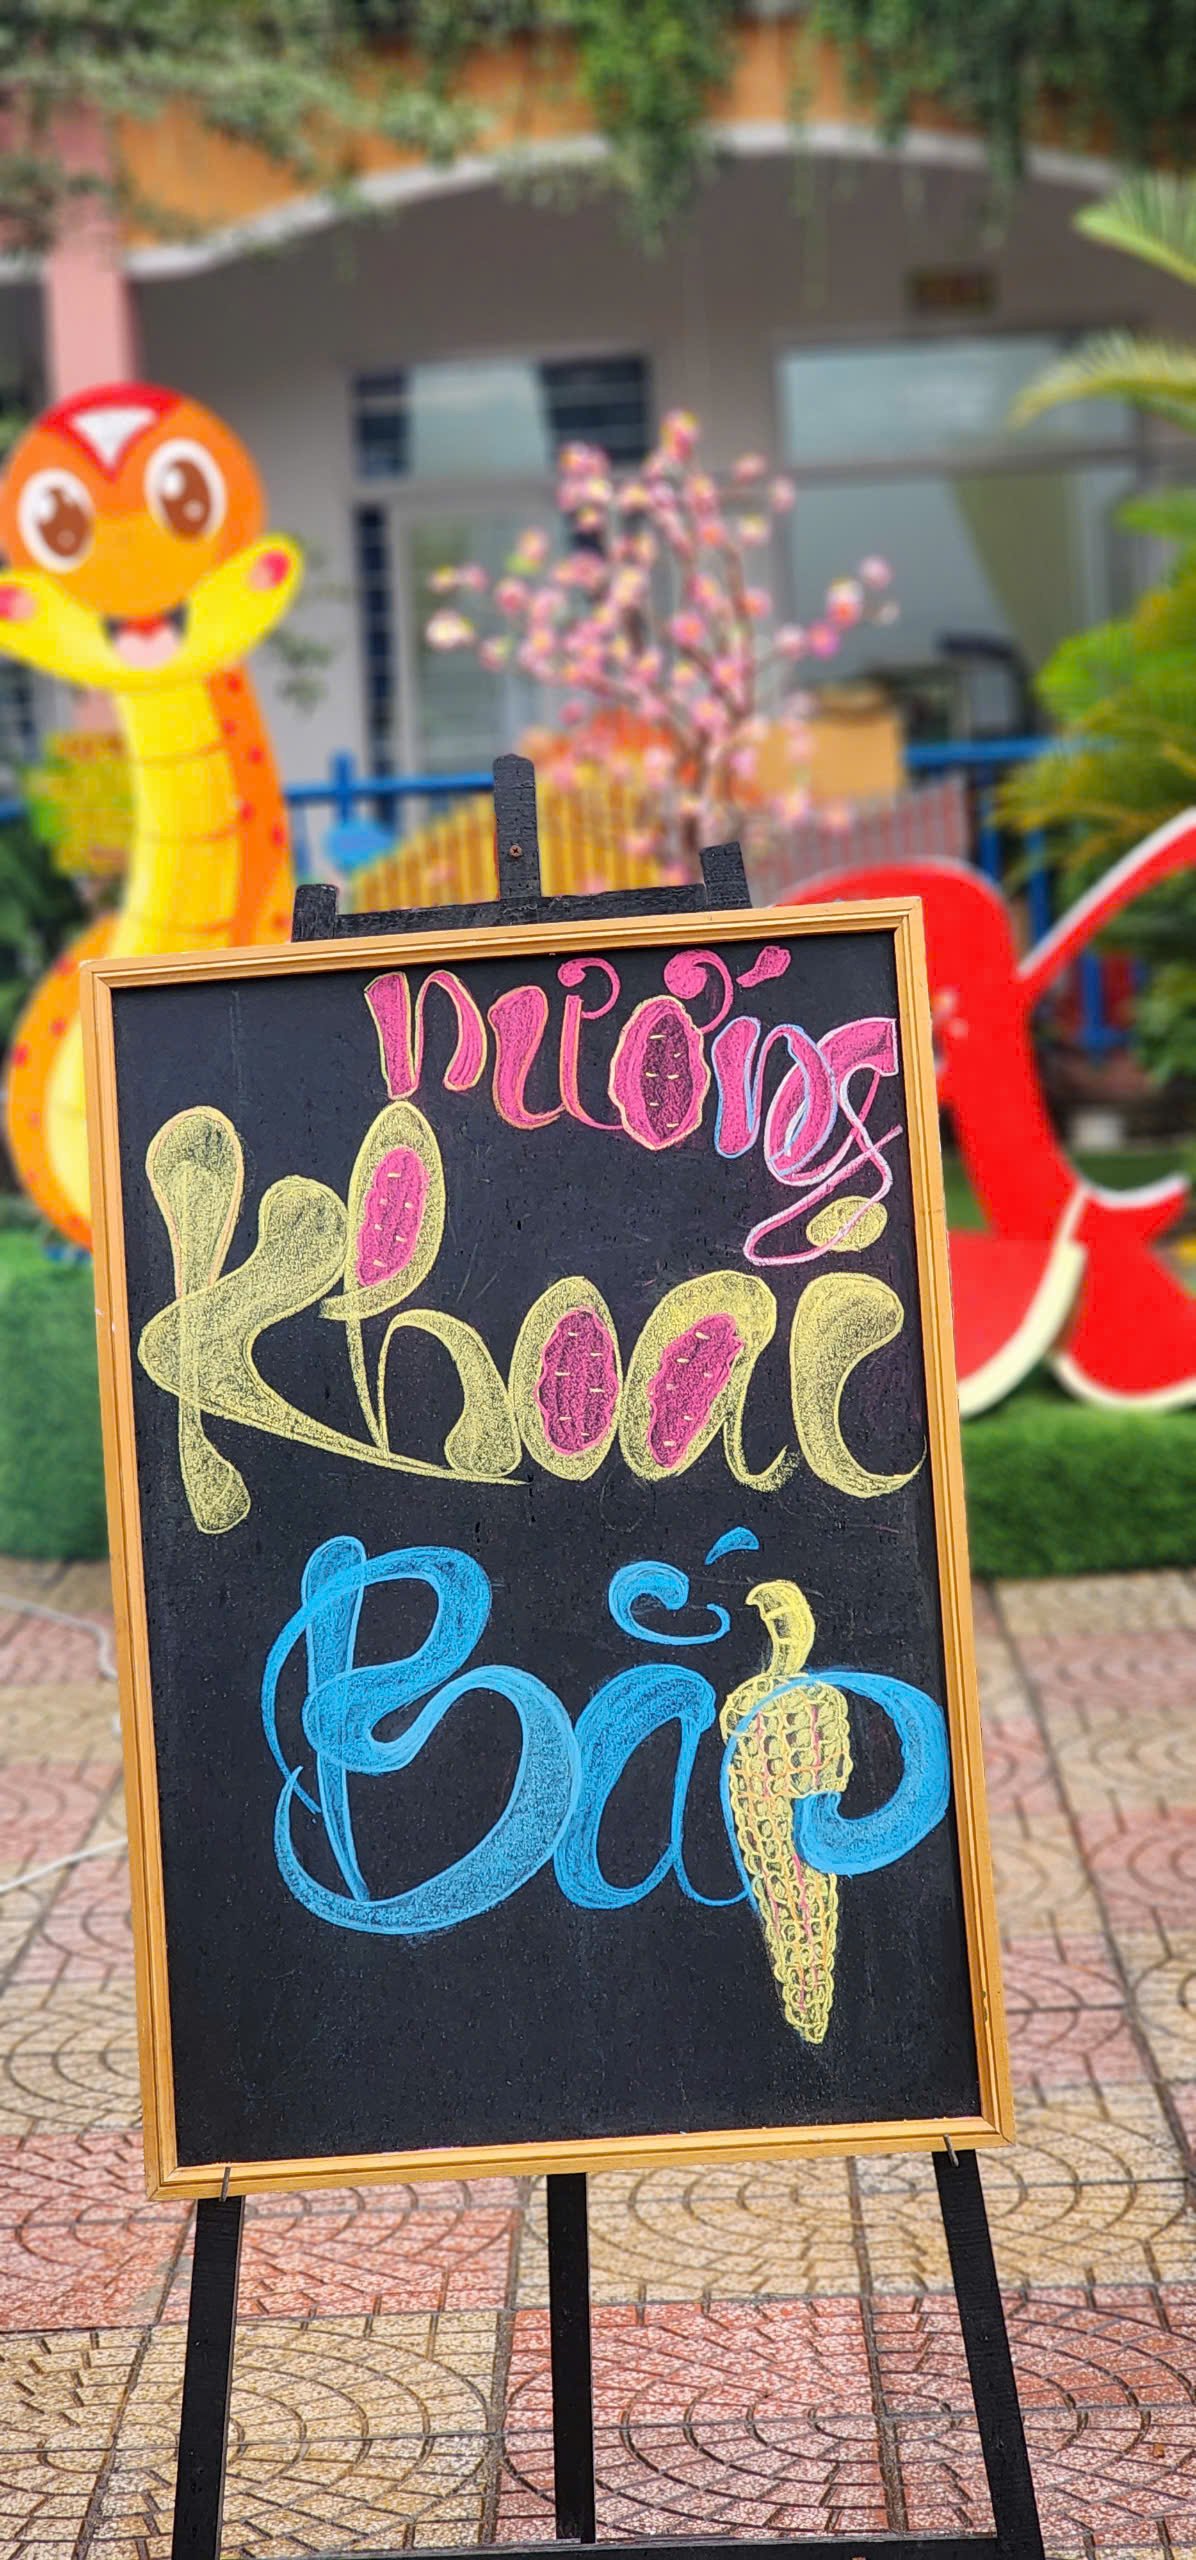 nướng
Khoai
Bắp